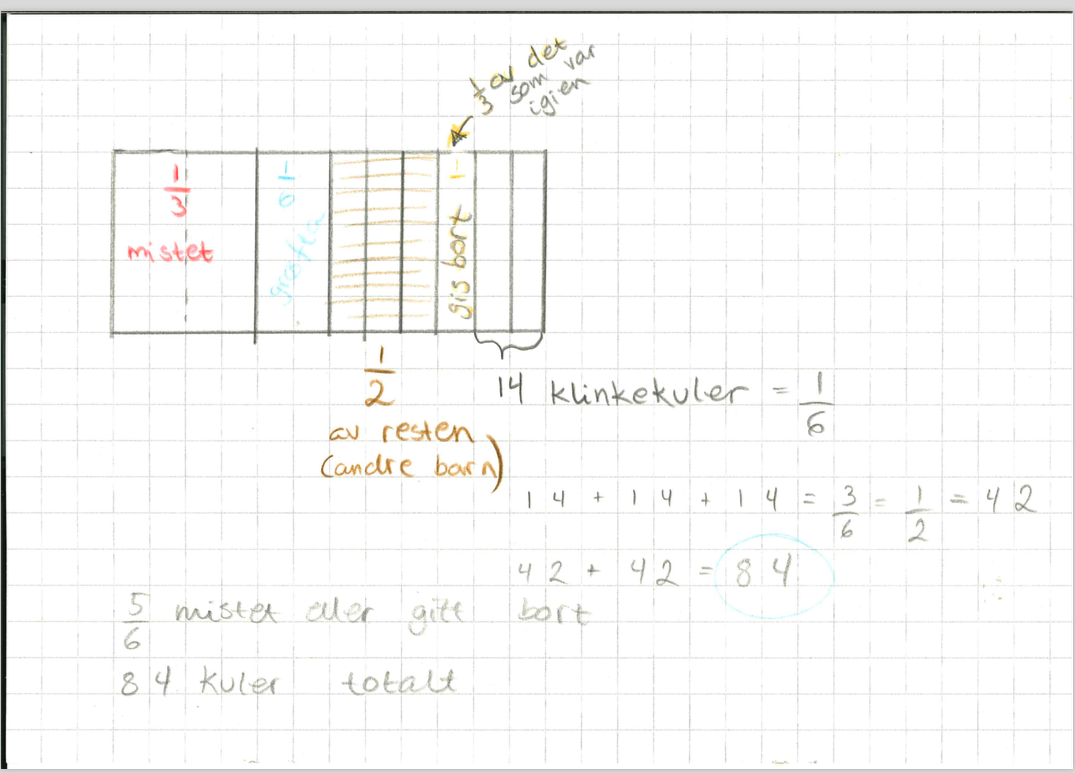 1/3 av det
som var
igien
1/3
mistet
1/6
grøfta
1
gis bort
1/2
av resten
(andre barn)
14 klinkekuler = 1/6
14 + 14 + 14 = 3/6 = 1/2 = 42
42 + 42 = 84
5/6 mistet eller gitt bort
84 kuler totalt